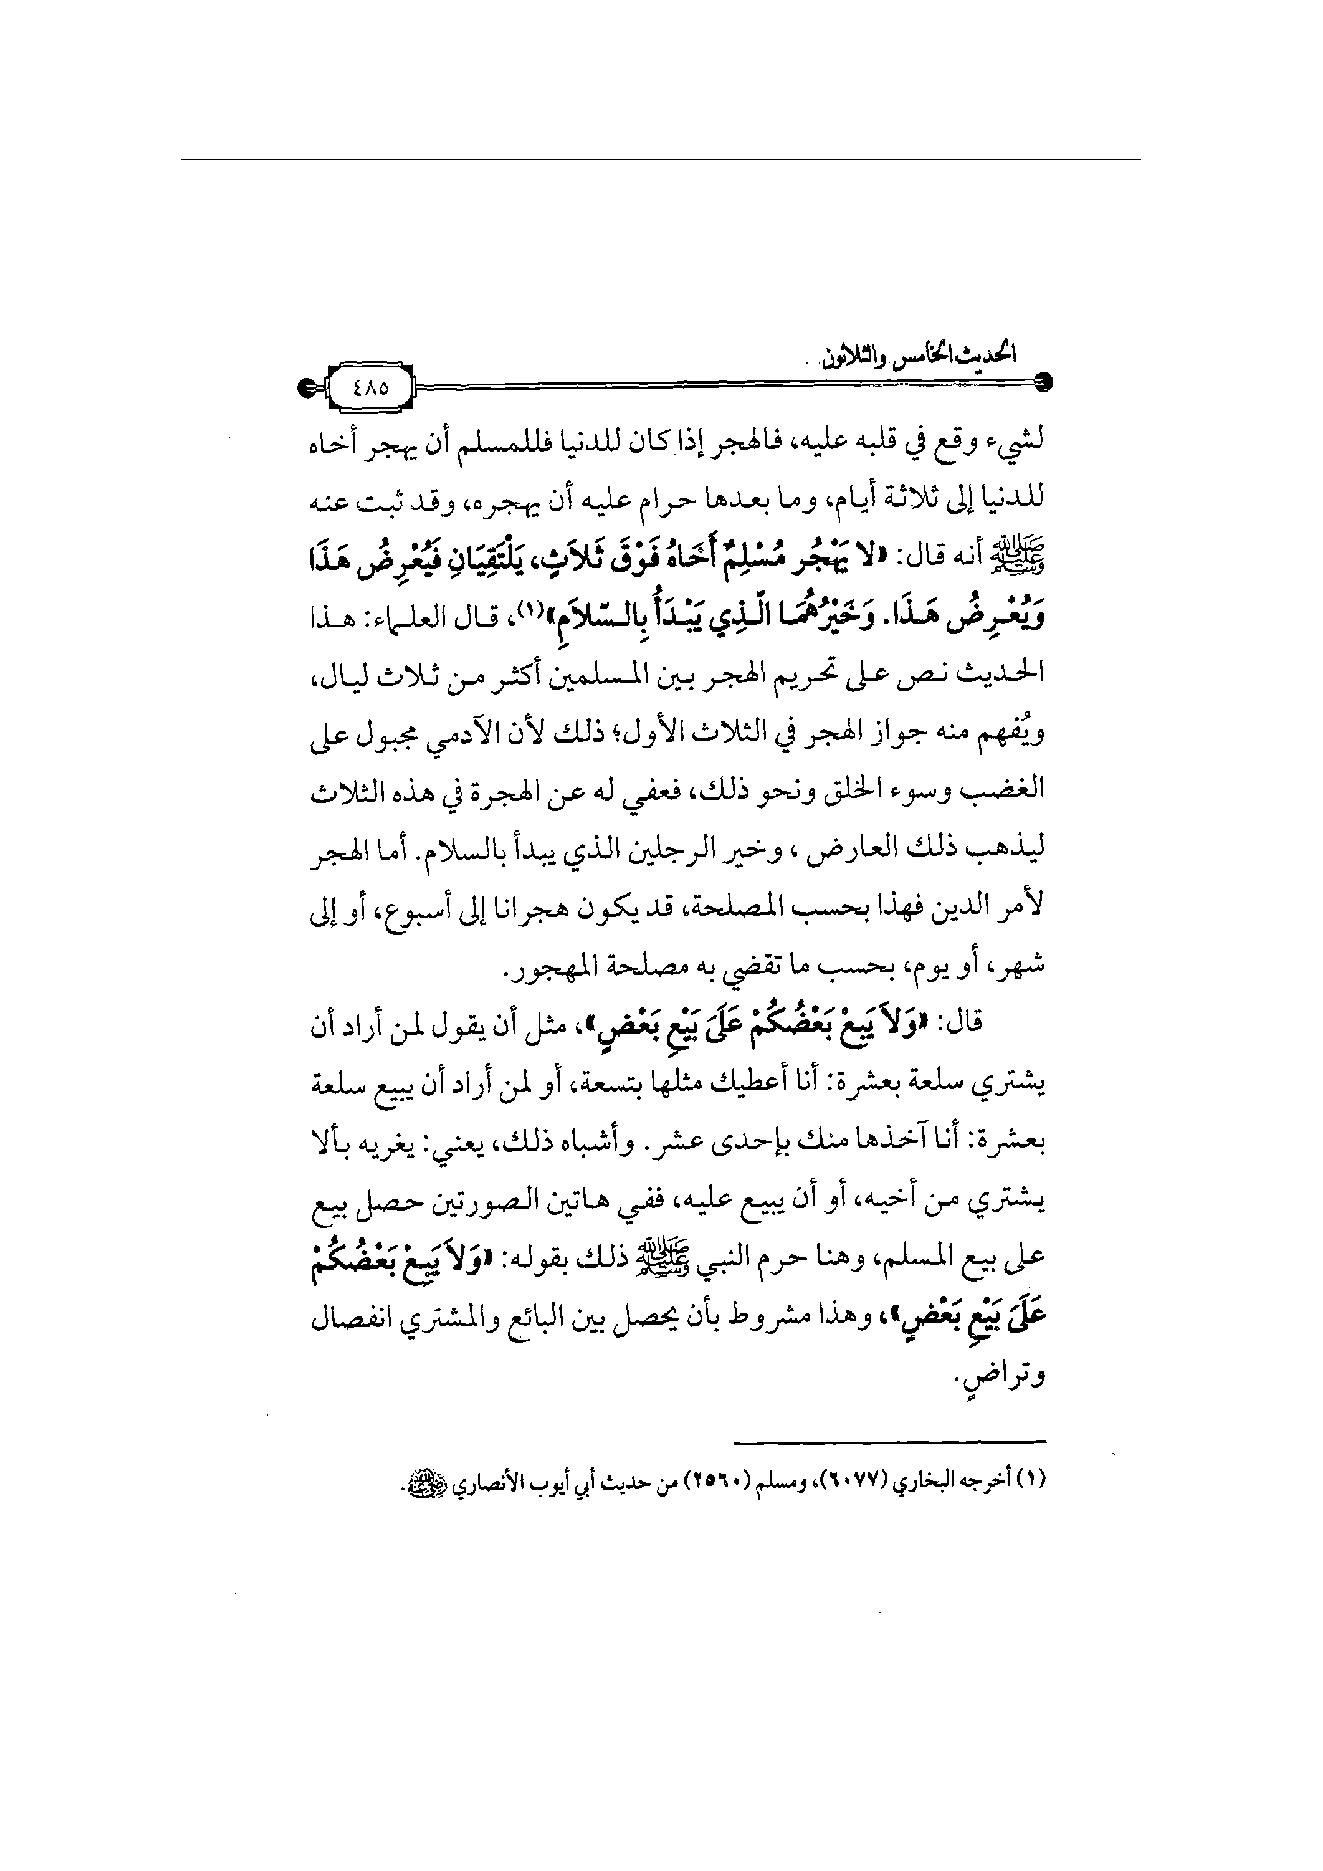 الحديث الخامس والثلاثون
٤٨٥
لشيء وقع في قلبه عليه، فالهجر إذا كان للدنيا فللمسلم أن يهجر أخاه
للدنيا إلى ثلاثة أيام، وما بعدها حرام عليه أن يهجره، وقد ثبت عنه
ﷺ أنه قال: «لا يَهْجُر مُسْلِمٌ أَخَاهُ فَوْقَ ثَلاَثٍ، يَلْتَقِيَانِ فَيُعْرِضُ هَذَا
وَيُعْرِضُ هَذَا. وَخَيْرُهُمَا الَّذِي يَبْدَأُ بِالسَّلاَمِ»(١)، قال العلماء: هذا
الحديث نص على تحريم الهجر بين المسلمين أكثر من ثلاث ليال،
ويُفهم منه جواز الهجر في الثلاث الأول؛ ذلك لأن الآدمي مجبول على
الغضب وسوء الخلق ونحو ذلك، فعفي له عن الهجرة في هذه الثلاث
ليذهب ذلك العارض ، وخير الرجلين الذي يبدأ بالسلام. أما الهجر
لأمر الدين فهذا بحسب المصلحة، قد يكون هجرانا إلى أسبوع، أو إلى
شهر، أو يوم، بحسب ما تقضي به مصلحة المهجور.
قال: «وَلاَ يَبِعْ بَعْضُكُمْ عَلَى بَيْعِ بَعْضٍ»، مثل أن يقول لمن أراد أن
يشتري سلعة بعشرة: أنا أعطيك مثلها بتسعة، أو لمن أراد أن يبيع سلعة
بعشرة: أنا آخذها منك بإحدى عشر. وأشباه ذلك، يعني: يغريه بألا
يشتري من أخيه، أو أن يبيع عليه، ففي هاتين الصورتين حصل بيع
على بيع المسلم، وهنا حرم النبي ﷺ ذلك بقوله: «وَلاَ يَبِعْ بَعْضُكُمْ
عَلَى بَيْعِ بَعْضٍ»، وهذا مشروط بأن يحصل بين البائع والمشتري انفصال
وتراضٍ.
(١) أخرجه البخاري (٦٠٧٧)، ومسلم (٢٥٦٠) من حديث أبي أيوب الأنصاري رضي الله عنه.